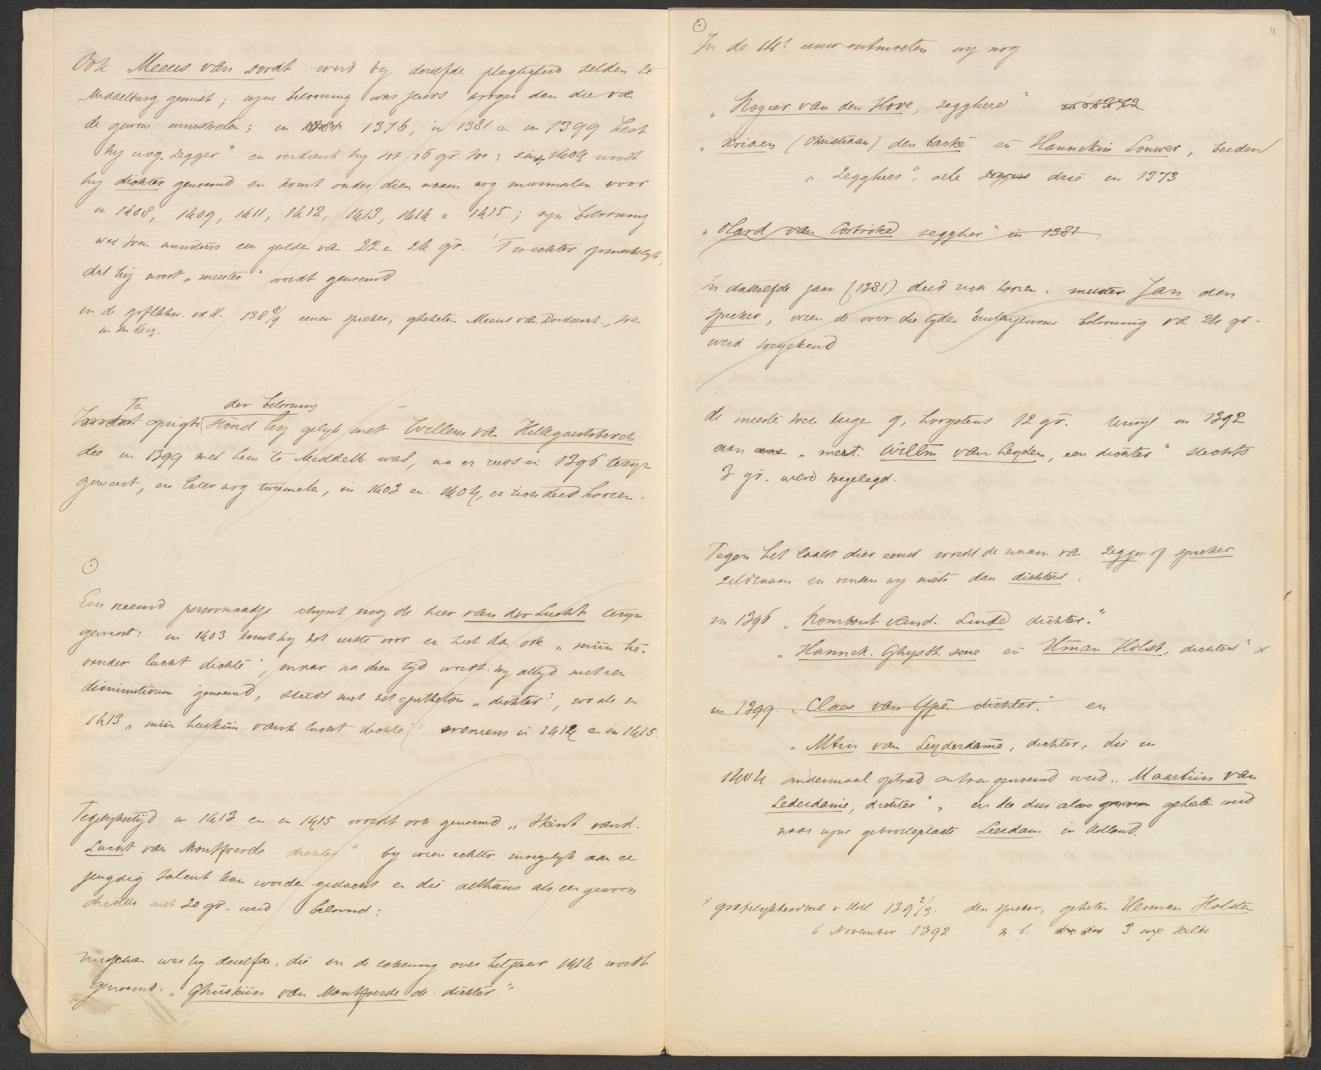 Ook Meeus van dordt werd by dezelfde plegtigheid zelden te
Middelburg gemist; zyne belooning was steeds hooger dan die van
de gewone minstrelen; in 1376, in 1381 en in 1399 heet
hy nog "zegger" en verdient hy tot 16 gr. toe; sinds 1404 wordt
hy dichter genoemd en komt onder dien naam nog meermalen voor
in 1408, 1409, 1411, 1412, 1413, 1414 en 1415; zyn belooning
was toen minstens een gulden van 22 en 24 gr. 't Is echter opmerkelyk,
dat hij nooit "meester" wordt genoemd
in de grflkhr. rek. 138 8/9 eenen spreker, geheten Meeus van Dordrecht,
in den Haag.
Te der belooning
opzigte stond hy gelyk met Willem van Hillegaertsberch
die in 1399 met hem te Middelb. was, na er reeds in 1396 terug
geweest, en later nog tweemalen, in 1403 en 1404, er zien deed hooren.
Een vreemd personnaadje schynt nog de heer van der Lucht terug
geweest: in 1403 komt hy het eerste voor en heet dan ook "miin he-
vander lucht dichte", maar na dien tyd wordt hy altyd met een
diminutivum genoemd, steeds met het epitheton "dichter", zoo als in
1413 "miin heerkiin vand lucht dichte" eveneens in 1412 en in 1415.
Tegelykertyd in 1413 en in 1415 wordt ook genoemd "Skint vand.
Lucht van Montfoerde dichter" by wien echter mogelyk aan een
jeugdig talent kan worden gedacht en die althans als een gewoon
dichter met 20 gr. werd beloond:
misschien was hy dezelfde, die in de rekening over het jaar 1414 wordt
genoemd "Ghiiskiin van Montfoerde de dichter"
In de 14e eeuw ontmoeten wy nog
"Rogier van den Hove, segghere"
"Kriaen (Christiaan) den backe en Hannekin Louwer, beiden
"Zegghers", alle drie in 1373
"Olard van Cortrike segghere" in 1381
In datzelfde jaar (1381) deed zich hooren meester Jan den
spreker, wien de voor die tyden buitengewone belooning van 24 gr.
werd toegekend
de meeste toch kregen 9, hoogstens 12 gr. terwyl in 1392
aan "mert. Willem van Leyden, een dichter" slechts
3 gr. werd toegelegd.
Tegen het laatst dier eeuw wordt de naam van zegger of spreker
zeldzaam en vinden wy niets dan dichters.
in 1396 "Rombout vand. Linde dichter."
"Hannek. Ghysth. sone en Herman Holst, dichters" x
in 1399 "Claes van Ypre dichter." en
"Mtiin van Leyderdame, dichter, die in
1404 andermaal optrad en toen genoemd werd "Maertiin van
Lederdame, dichter", en die dus alzoo geheten werd
naar zyne geboorteplaats Leerdam in Holland.
x grafelykheidsrek v Holl. 139 2/3. den spreker, geheten Herman Holsten
6 November 1392 n. b. 3 nye gulde